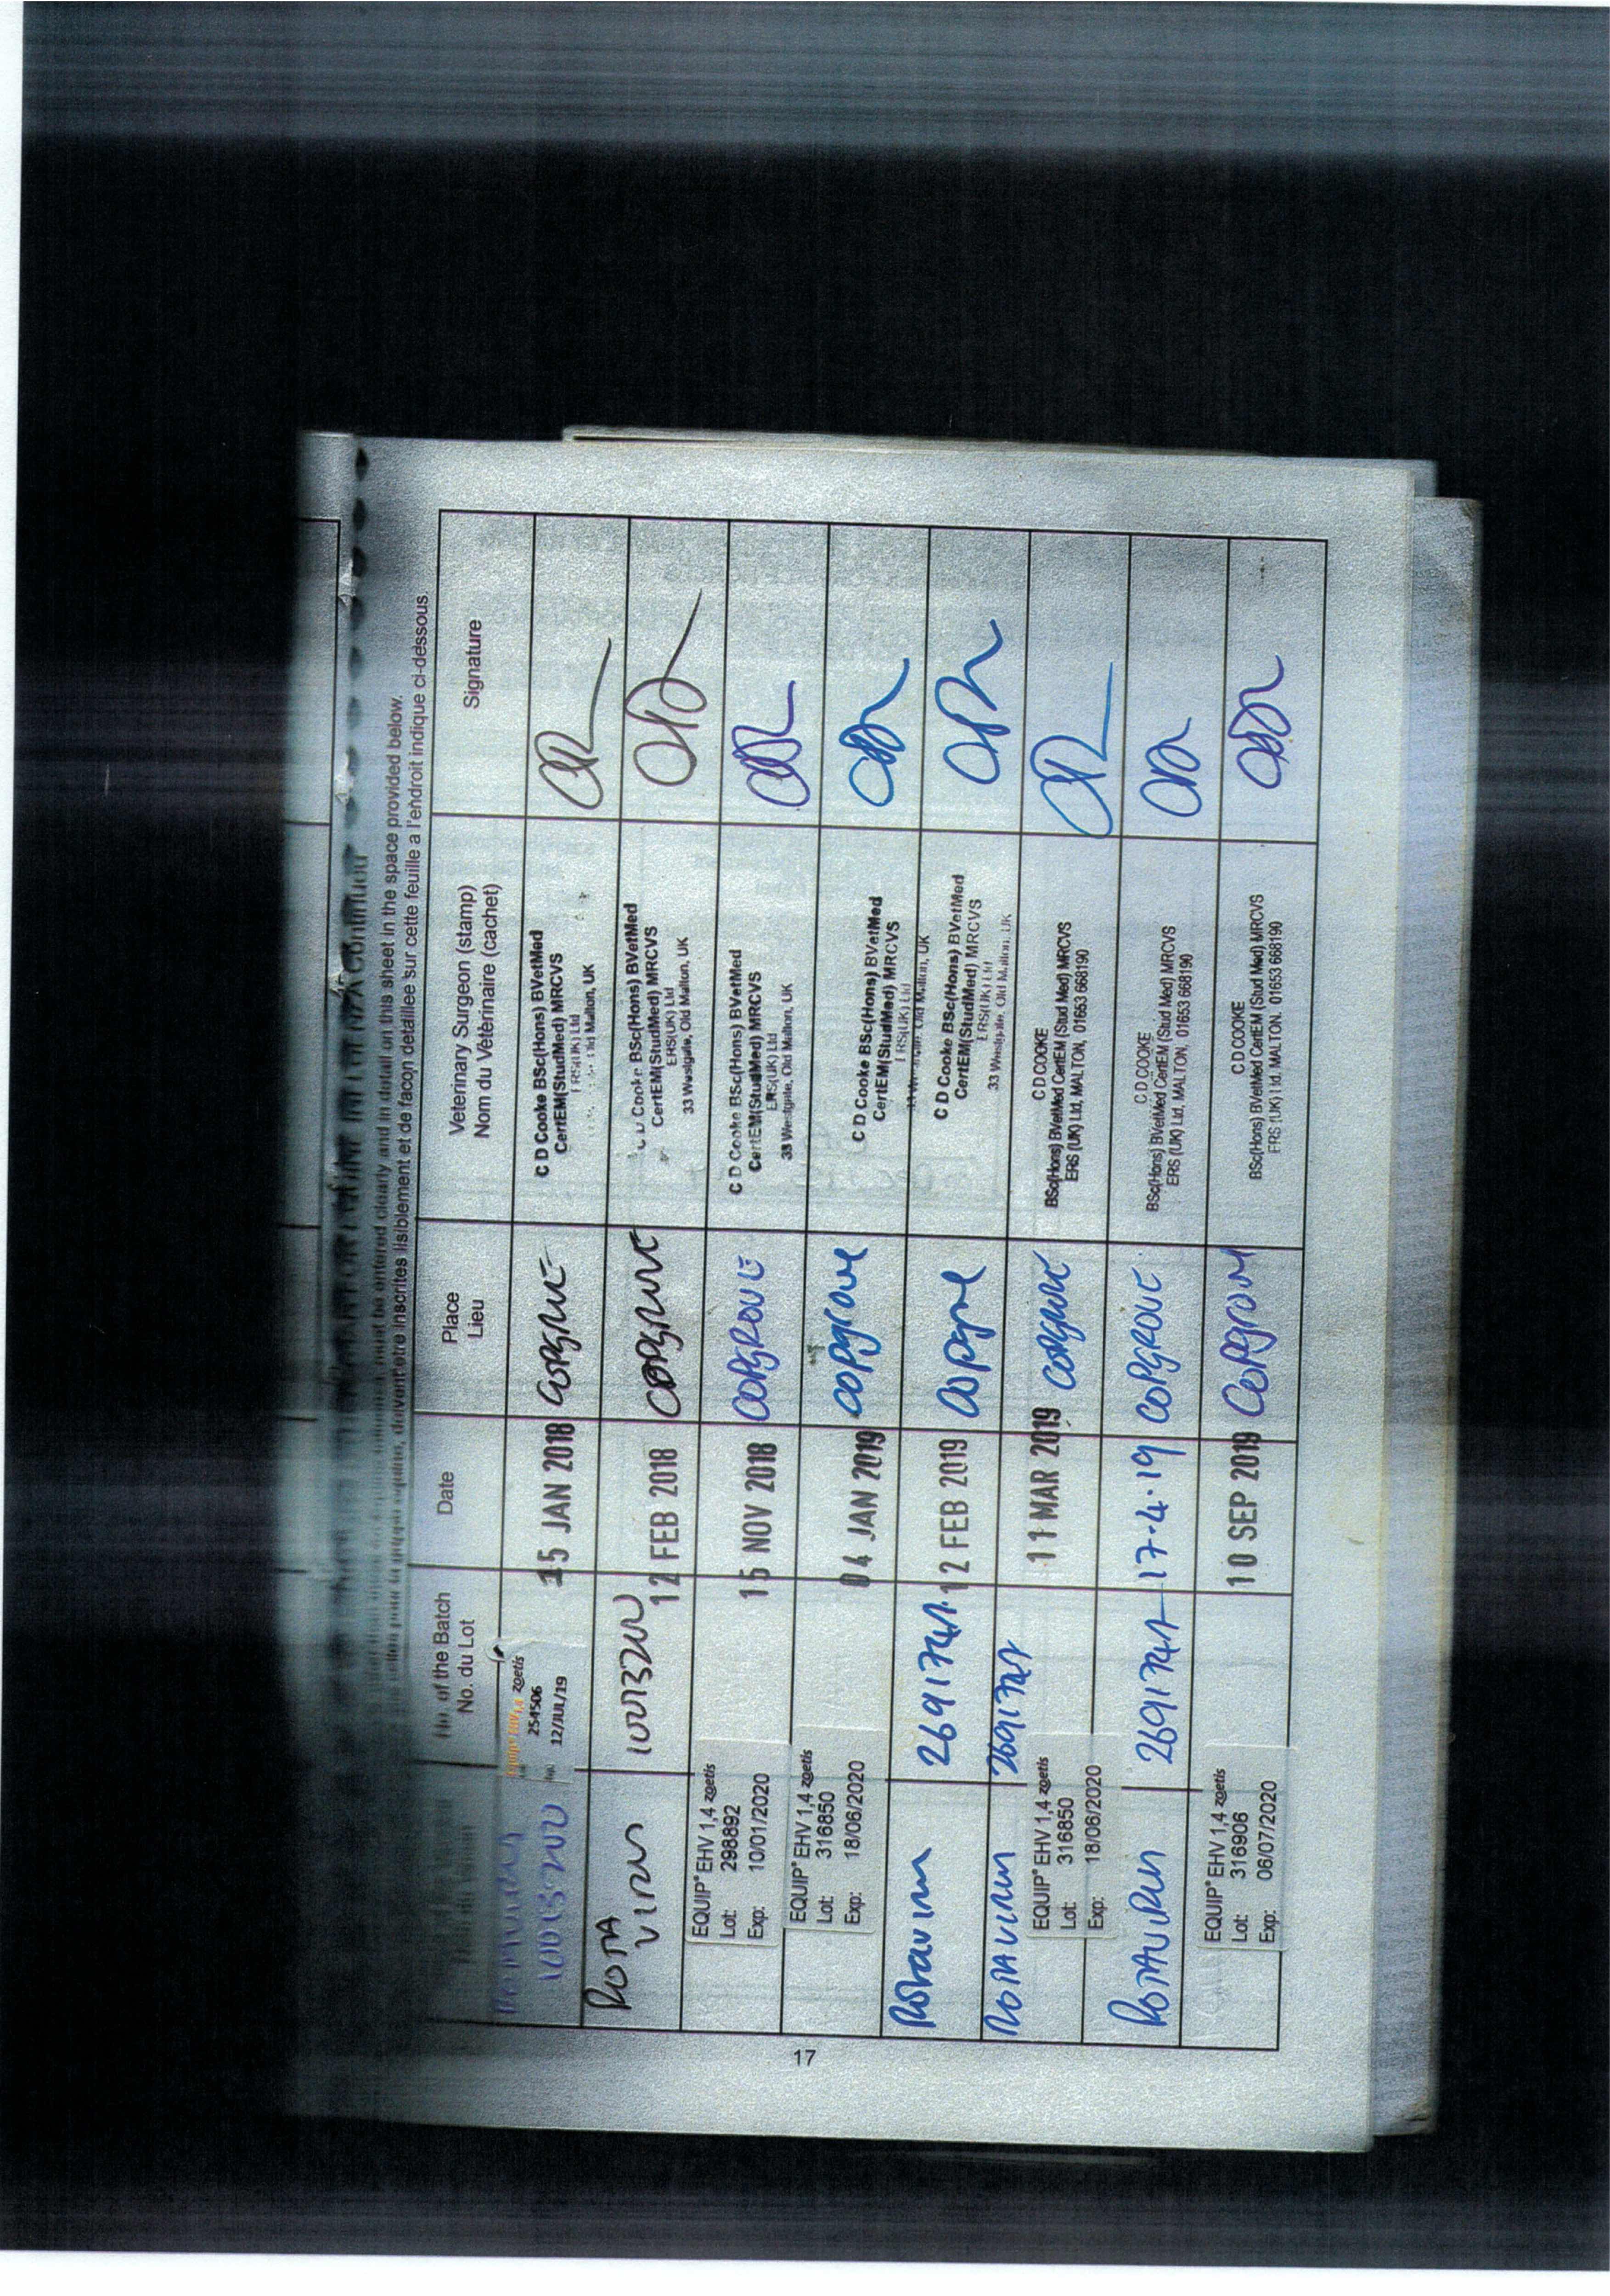 must be entered clearly and in detail on this sheet in the space provided below.
doivent etre inscrites lisiblement et de facon detaillee sur cette feuille a l'endroit indique ci-dessous.
No. of the Batch
No. du Lot
Date
Place
Lieu
Veterinary Surgeon (stamp)
Nom du Veterinaire (cachet)
Signature
zoetis
254506
12/JUL/19
15 JAN 2018
COPGROVE
C D Cooke BSc(Hons) BVetMed
CertEM(StudMed) MRCVS
ERS(UK) Ltd
Old Malton, UK
ROTA
VIRUS
12 FEB 2018
COPGROVE
C D Cooke BSc(Hons) BVetMed
CertEM(StudMed) MRCVS
ERS(UK) Ltd
33 Westgate, Old Malton, UK
EQUIP® EHV 1,4 zoetis
Lot: 298892
Exp: 10/01/2020
15 NOV 2018
COPGROVE
C D Cooke BSc(Hons) BVetMed
CertEM(StudMed) MRCVS
ERS(UK) Ltd
33 Westgate, Old Malton, UK
EQUIP® EHV 1,4 zoetis
Lot: 316850
Exp: 18/06/2020
04 JAN 2019
copgrove
C D Cooke BSc(Hons) BVetMed
CertEM(StudMed) MRCVS
ERS(UK) Ltd
33 Westgate, Old Malton, UK
Rotavirus
269174A
12 FEB 2019
C D Cooke BSc(Hons) BVetMed
CertEM(StudMed) MRCVS
ERS(UK) Ltd
33 Westgate, Old Malton, UK
ROTAVIRUS
269174A
EQUIP® EHV 1,4 zoetis
Lot: 316850
Exp: 18/06/2020
11 MAR 2019
COPGROVE
C D COOKE
BSc(Hons) BVetMed CertEM (Stud Med) MRCVS
ERS (UK) Ltd, MALTON, 01653 668190
ROTAVIRUS
269174A
17.4.19
COPGROVE
C D COOKE
BSc(Hons) BVetMed CertEM (Stud Med) MRCVS
ERS (UK) Ltd, MALTON, 01653 668190
EQUIP® EHV 1,4 zoetis
Lot: 316906
Exp: 06/07/2020
10 SEP 2019
COPGROVE
C D COOKE
BSc(Hons) BVetMed CertEM (Stud Med) MRCVS
ERS (UK) Ltd, MALTON. 01653 668190
17